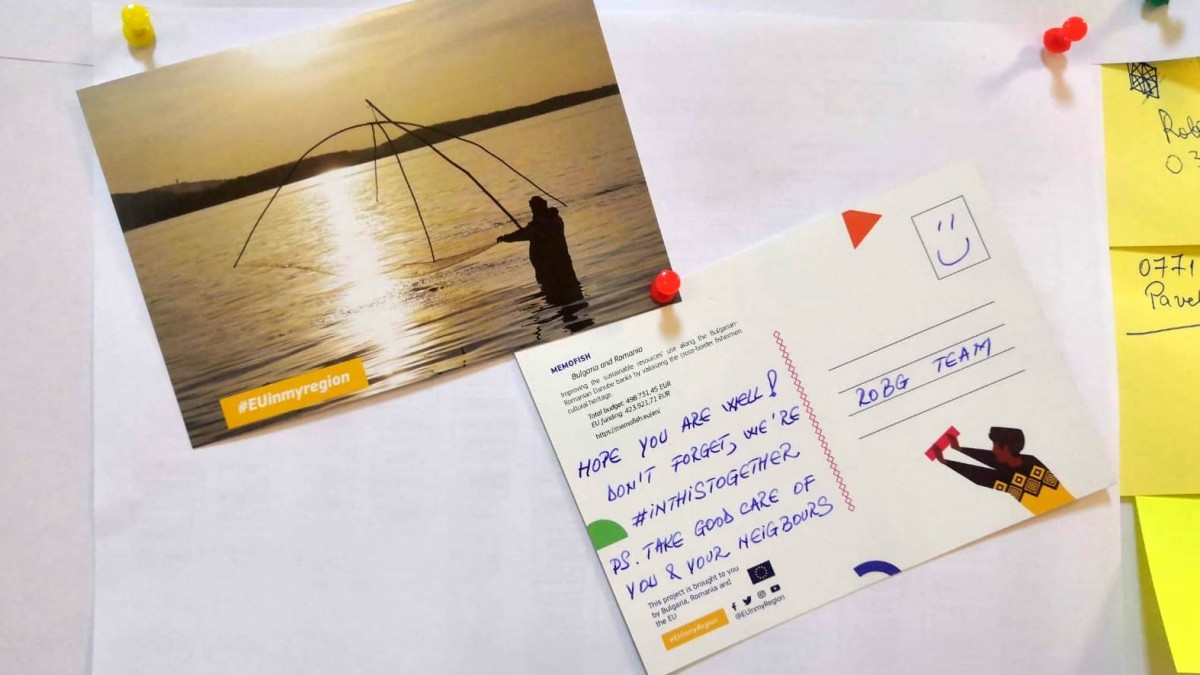 #EUinmyregion
MEMOFISH
Bulgaria and Romania
Improving the sustainable resources' use along the Bulgarian-
Romanian Danube banks by valorizing the cross-border fishermen
cultural heritage.
Total budget: 498.731,45 EUR
EU funding: 423.921,71 EUR
https://memofish.eu/en/
HOPE YOU ARE WELL!
DON'T FORGET, WE'RE
#INTHISTOGETHER
PS. TAKE GOOD CARE OF
YOU & YOUR NEIGBOURS
This project is brought to you
by Bulgaria, Romania and
the EU
@EUinmyRegion
#EUinmyRegion
ROBG TEAM
0771
Pavel